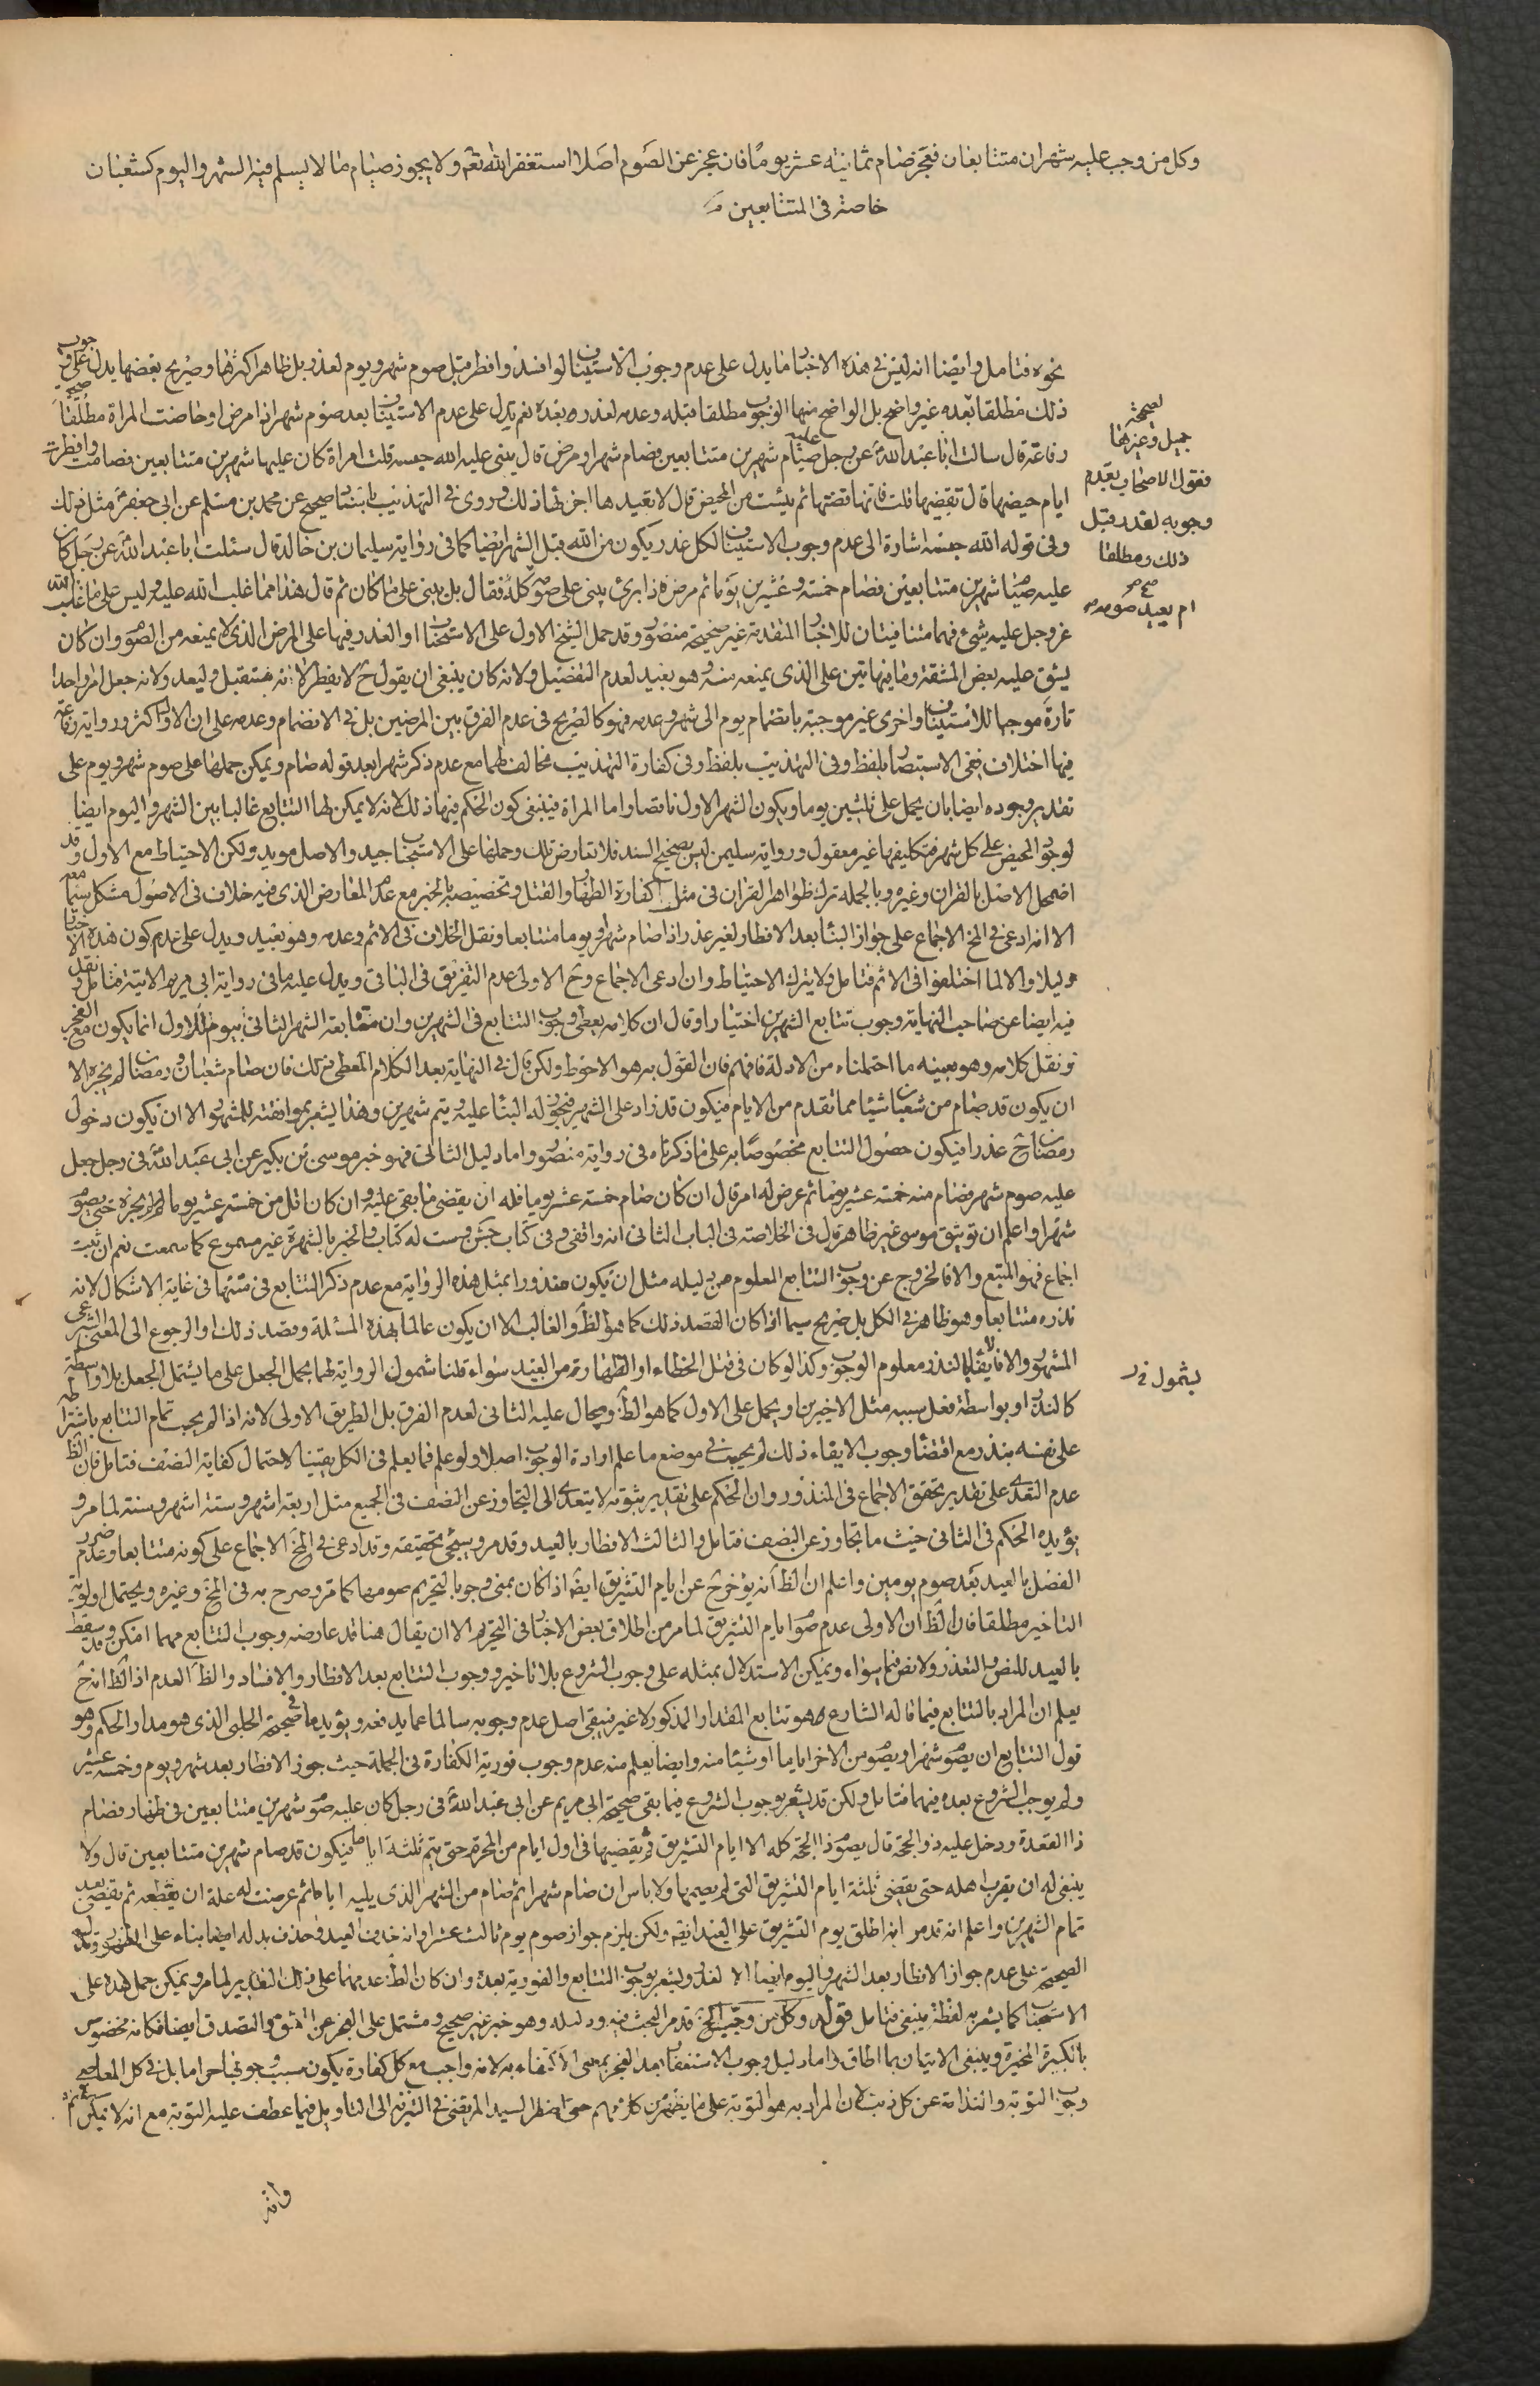 وكل من وجب عليه شهران متتابعان فعجز صام ثمانية عشر يوما فان عجز عن الصوم اصلا استغفر الله تعم ولا يجوز صيام ما لا يسلم فيه الشهر واليوم كشعبان
خاصة فى المتتابعين
نحوه فتامل وايضا انه ليس فى هذه الاخبار ما يدل على عدم وجوب الاستيناف لو افسد وافطر قبل صوم شهر ويوم لعذر بل ظاهر اكثرها وصريح بعضها يدل على وجوب
ذلك مطلقا بعده غير واضح بل الواضح منها الوجوب مطلقا قبله وعدمه لعذر وبعده نعم يدل على عدم الاستيناف بعد صوم شهر اذا مرض او حاضت المراة مطلقا صحيحة
رفاعة قال سالت ابا عبد الله عن رجل عليه صيام شهرين متتابعين فصام شهرا ومرض قال يبنى عليه الله حبسه قلت امراة كان عليها شهرين متتابعين فصامت وافطرت
ايام حيضها قال تقضيها قلت فانها قضتها ثم يئست من المحيض قال لا تعيدها اجزئها ذلك وروى فى التهذيب باسناد صحيح عن محمد بن مسلم عن ابى جعفر مثل ذلك
وفى قوله الله حبسه اشارة الى عدم وجوب الاستيناف لكل عذر يكون من الله قبل الشهر ايضا كما فى رواية سليمان بن خالد قال سئلت ابا عبد الله عن رجل كان
عليه صيام شهرين متتابعين فصام خمسة وعشرين يوما ثم مرض فاذا برئ يبنى على صومه كله فقال بل يبنى على ما كان ثم قال هذا مما غلب الله عليه وليس على ما غلب الله
عز وجل عليه شيء فهما متنافيتان للاخبار المتقدمة غير صحيحة منصور وقد حمل الشيخ الاول على الاستحباب او العذر فيها على المرض الذى لا يمنعه من الصوم وان كان
يشق عليه بعض المشقة وما فى هاتين على الذى يمنعه منه وهو بعيد لعدم التفصيل ولانه كان ينبغى ان يقول ح لا يفطر لا انه يستقبل وليعد ولانه جعل امرا واحدا
تارة موجبا للاستيناف واخرى غير موجبة بانضمام يوم الى شهر وعدمه فهو كالصريح فى عدم الفرق بين المرضين بل فى الانضمام وعدمه على ان الاول اكثر ورواية رفاعة
فيها اختلاف ففى الاستبصار بلفظ وفى التهذيب بلفظ وفى كفارة التهذيب مخالف لهما مع عدم ذكر شهرا بعد قوله صام ويمكن حملها على صوم شهر ويوم على
تقدير وجوده ايضا بان يحمل على ثلثين يوما ويكون الشهر الاول ناقصا واما المراة فينبغى كون الحكم فيها ذلك لانه لا يمكن لها التتابع غالبا بين الشهر واليوم ايضا
لوجود المحيض على كل شهر فتكليفها غير معقول ورواية سليمن ليس بصحيح السند فلا تعارض تلك وحملها على الاستحباب جيد والاصل مويد ولكن الاحتياط مع الاول وقد
اضمحل الاصل بالقران وغيره وبالجملة ترك ظواهر القران فى مثل كفارة الظهار والقتل وتخصيصه بالخبر مع عدم المعارض الذى فيه خلاف فى الاصول مشكل سيما معه
الا انه ادعى فى المخ الاجماع على جواز البناء بعد الافطار لغير عذر اذا صام شهرا ويوما متتابعا ونقل الخلاف فى الاثم وعدمه وهو بعيد ويدل على عدم كون هذه الاخبار
دليلا والا لما اختلفوا فى الاثم فتامل ولا يترك الاحتياط وان ادعى الاجماع وح الاولى عدم التفريق فى الباقى ويدل عليه ما فى رواية ابى مريم الاتية فتامل ونقل
فيه ايضا عن صاحب النهاية وجوب تتابع الشهرين اختيارا وقال ان كلامه يعطى وجوب التتابع فى الشهرين وان متابعة الشهر الثانى بيوم للاول انما يكون مع العجز
ونقل كلامه وهو بعينه ما احتملناه من الادلة فافهم فان القول به هو الاحوط ولكن قال فى النهاية بعد الكلام المعطى ذلك فان صام شعبان ورمضان لم يجزه الا
ان يكون قد صام من شعبان شيئا مما تقدم من الايام فيكون قد زاد على الشهر فيجوز له البناء عليه ويتم شهرين وهذا يشعر بموافقته للمشهور الا ان يكون دخول
رمضان ح عذرا فيكون حصول التتابع مخصوصا به على ما ذكرناه فى رواية منصور واما دليل الثانى فهو خبر موسى بن بكير عن ابى عبد الله فى رجل جعل
عليه صوم شهر فصام منه خمسة عشر يوما ثم عرض له امر قال ان كان صام خمسة عشر يوما فله ان يقضى ما بقى عليه وان كان اقل من خمسة عشر يوما لم يجزه حتى يصوم
شهرا واعلم ان توثيق موسى غير ظاهر قال فى الخلاصة فى الباب الثانى انه واقفى وفى كتاب جش وست له كتاب والخبر بالشهرة غير مسموع كما سمعت نعم ان ثبت
اجماع فهو المتبع والا فالخروج عن وجوب التتابع المعلوم من دليله مثل ان يكون منذورا بمثل هذه الرواية مع عدم ذكر التتابع فى متنها فى غاية الاشكال لانه
نذره متتابعا وهو ظاهر فى الكل بل صريح سيما اذا كان القصد ذلك كما هو الظ والغالب الا ان يكون عالما بهذه المسئلة وقصد ذلك او الرجوع الى المعنى الشرعى
المشهور والا فلا يقال بالنذر معلوم الوجوب وكذا لو كان فى قتل الخطاء او الظهار من العبد سواء قلنا شمول الرواية لهما بحمل الجعل على ما يشتمل الجعل بلا واسطة
كالنذر او بواسطة فعل سببه مثل الاخيرين او يحمل على الاول كما هو الظ ويحال عليه الثانى لعدم الفرق بل الطريق الاولى لانه اذا لم يجب تمام التتابع باشتراطه
على نفسه بنذر مع اقتضاء وجوب الايفاء ذلك لم يجب فى موضع ما علم ارادة الوجوب اصلا ولو علم فما يعلم فى الكل يقينا لاحتمال كفاية النصف فتامل فان الظ
عدم التعدى على تقدير تحقق الاجماع فى المنذور وان الحكم على تقدير ثبوته لا يتعدى الى التجاوز عن النصف فى الجميع مثل اربعة اشهر وستة اشهر وسنة لما مر و
يؤيده الحكم فى الثانى حيث ما تجاوز عن النصف فتامل والثالث الافطار بالعيد وقد مر ويسجئ تحقيقه وقد ادعى فى المخ الاجماع على كونه متتابعا وعدم ضرر
الفصل بالعيد بعد صوم يومين واعلم ان الظ انه يؤخر ح عن ايام التشريق ايضا اذا كان بمنى وجوبا لتحريم صومها كما مر وصرح به فى المخ وغيره ويحتمل اولوية
التاخير مطلقا فان الظ ان الاولى عدم صوم ايام التشريق لما مر من اطلاق بعض الاخبار فى التحريم الا ان يقال هنا قد عارضه وجوب التتابع مهما امكن وقد سقط
بالعيد للنص والتعذر ولا نص فيما سواه ويمكن الاستدلال بمثله على وجوب الشروع بلا تاخير ووجوب التتابع بعد الافطار والافساد والظ العدم اذ الظ انه ح
يعلم ان المراد بالتتابع فيما قاله الشارع هو تتابع المقدار المذكور لا غير فيبقى اصل عدم وجوبه سالما عما يدفعه ويؤيده ما فى صحيحة الحلبى الذى هو مدار الحكم وهو
قول التتابع ان يصوم شهرا ويصوم من الاخر اياما او شيئا منه وايضا يعلم منه عدم وجوب فورية الكفارة فى الجملة حيث جوز الافطار بعد شهر ويوم وخمسة عشر
ولم يوجب الشروع بعده فيهما فتامل ولكن قد يشعر بوجوب الشروع فيما بقى صحيحة ابى مريم عن ابى عبد الله فى رجل كان عليه صوم شهرين متتابعين فى ظهار فصام
ذا القعدة ودخل عليه ذو الحجة قال يصوم ذا الحجة كله الا ايام التشريق ثم يقضيها فى اول ايام من المحرم حتى يتم ثلثة ايام فيكون قد صام شهرين متتابعين قال ولا
ينبغى له ان يقرب اهله حتى يقضى ثلثة ايام التشريق التى لم يصمها ولا باس ان صام شهرا ثم صام من الشهر الذى يليه اياما ثم عرضت له علة ان يقطعه ثم يقضى بعد
تمام الشهرين واعلم انه قد مر انه اطلق يوم التشريق على العيد ايضا ولكن يلزم جواز صوم يوم ثالث عشر او انه حذف العيد وحذف بدله ايضا بناء على
الصحيحة على عدم جواز الافطار بعد الشهر واليوم ايضا الا لعذر ويشعر بوجوب التتابع والفورية بعده وان كان الظ عدمهما على ذلك التقدير لما مر ويمكن حمل هذه على
الاستحباب كما يشعر به لفظة ينبغى فتامل قوله وكل من وجب الخ قد مر البحث فيه ودليله وهو خبر غير صحيح ومشتمل على العجز عن العتق والتصدق ايضا فكانه مخصوص
بالكبيرة المخيرة وينبغى الاتيان بما اطاق واما دليل وجوب الاستغفار بعد العجز بمعنى الاكتفاء به لانه واجب مع كل كفارة يكون سبب وجوبها حراما بل فى كل المعاصى
وجوب التوبة والندامة عن كل ذنب لان المراد به هو التوبة على ما يظهر من كلامهم حتى اضطر السيد المرتضى فى التنزيه الى التاويل فيما عطف عليه التوبة مع انه لا يمكن
وانه
لصحيحة
جميل وغيرها
فقول الاصحاب بعدم
وجوبه لعذر قبل
ذلك ومطلقا
ام يعيد صومه
بشمول